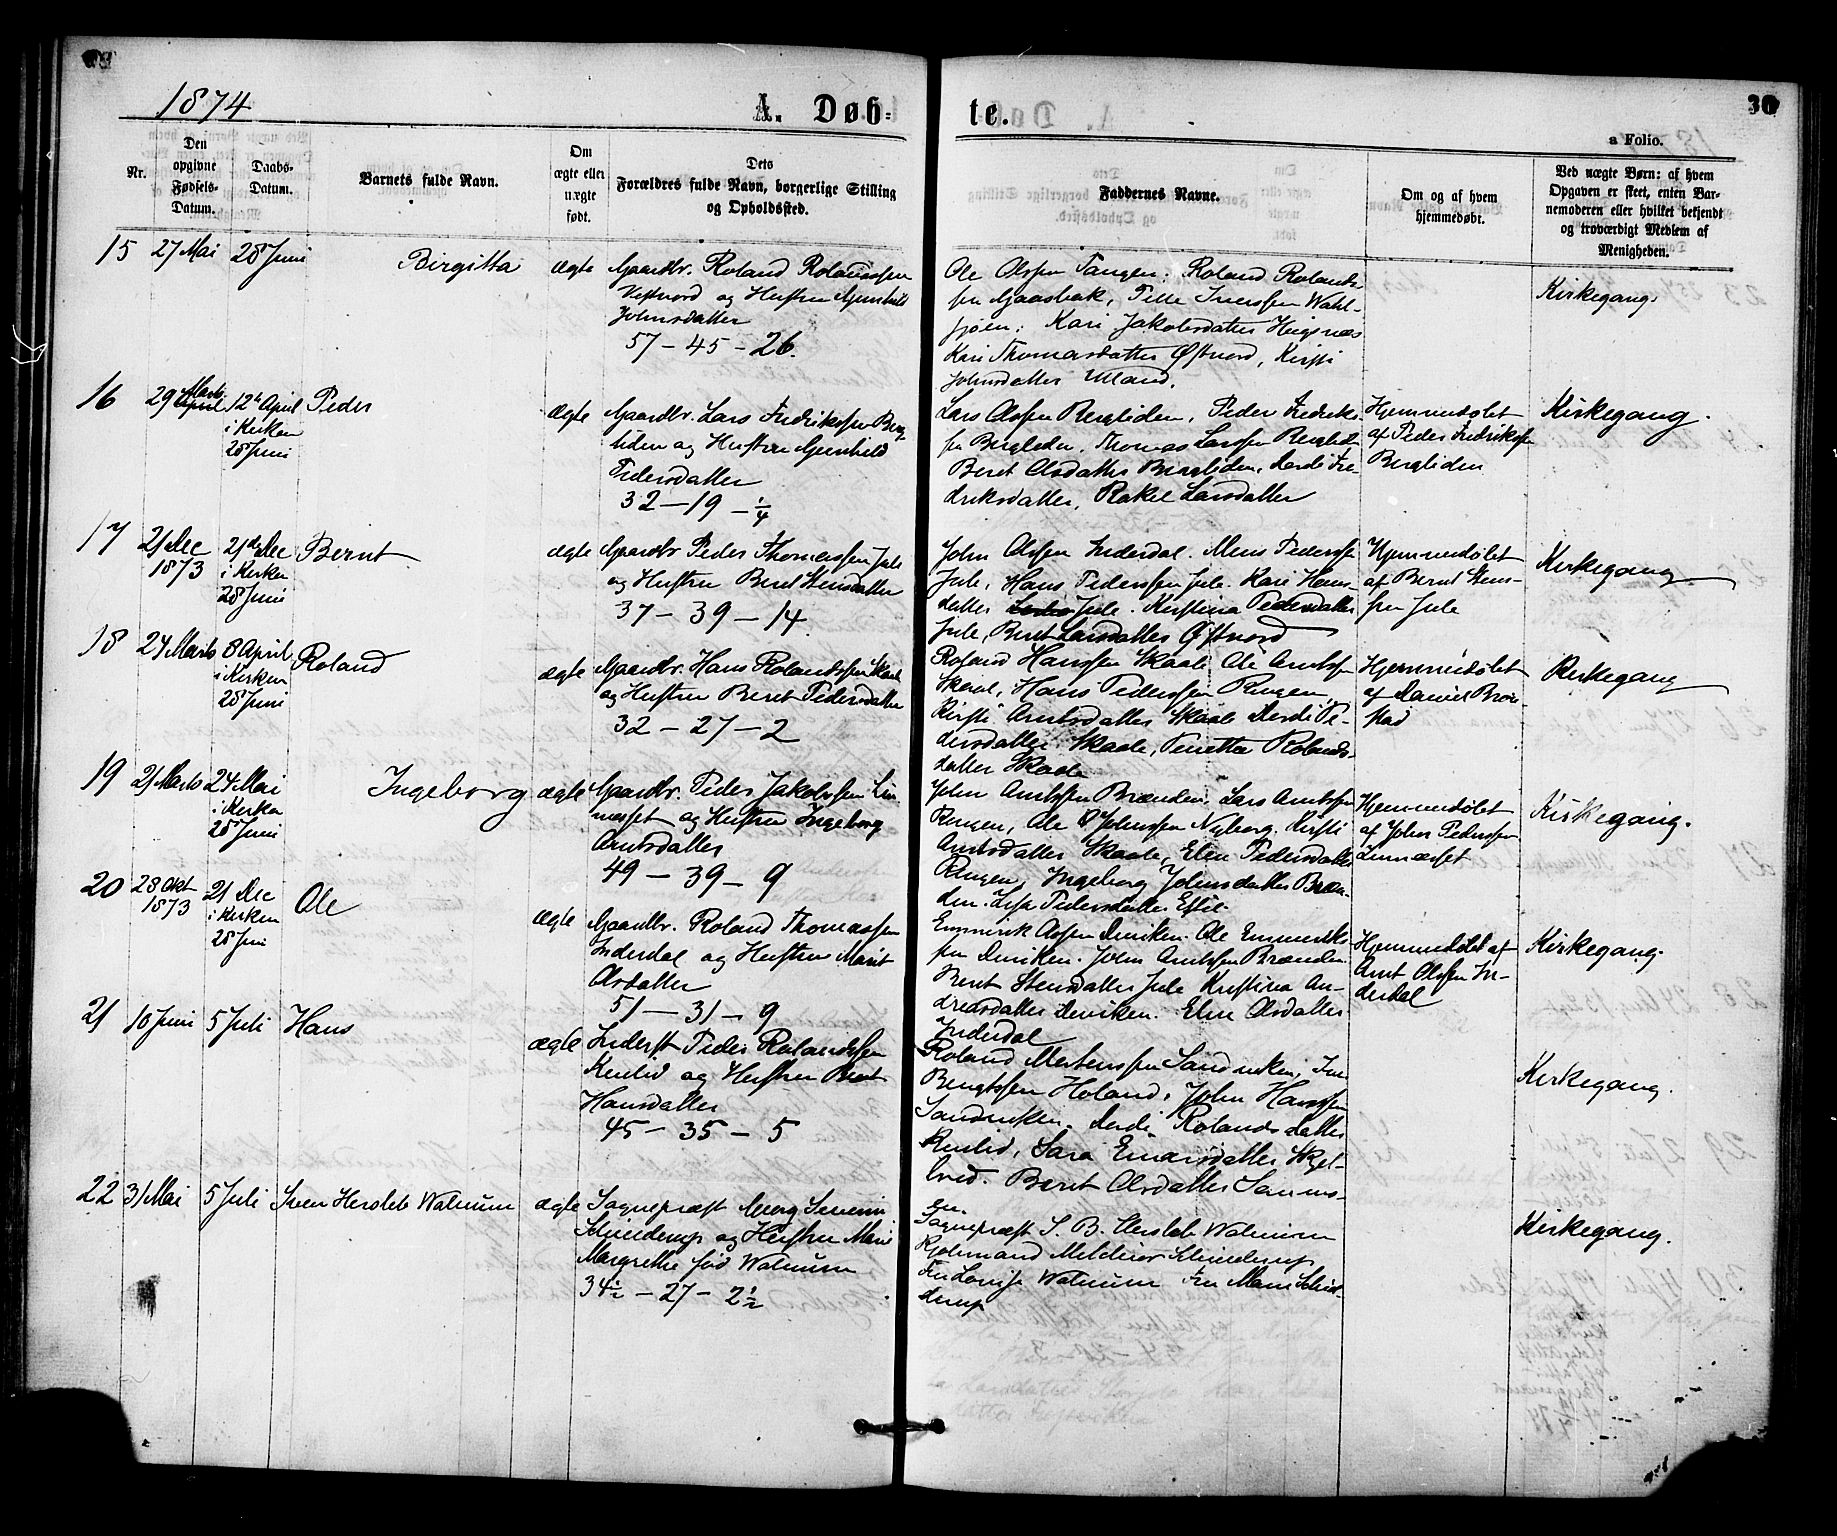 1874
A. Døb-
te.
30
a Folio.
Nr.
Den
opgivne
Fødsels-
Datum.
Daabs-
Datum.
Barnets fulde Navn.
Om
ægte eller
uægte
født.
Dets
Forældres fulde Navn, borgerlige Stilling
og Opholdssted.
Faddernes Navne.
Om og af hvem
hjemmedøbt.
Ved uægte Børn: af hvem
Opgaven er skeet, enten Bar-
nemoderen eller hvilket bekjendt
og troværdigt Medlem af
Menigheden.
15 27 Mai 28 Juni Birgitta ægte Gaardbr. Roland Rolandssen
Vestnord og Hustru Gunhild
Johnsdatter
57 - 45 - 26.
Ole Olssen Tangen, Roland Rolands-
sen Gaasbak, Iverssen
Kari Jakobsdatter
Kari Thomasdatter Østnord, Kirsti
Johnsdatter
Kirkegang.
16 29 Marts 12te April Peder
i Kirken
28 Juni
ægte Gaardbr. Lars Fredrikssen Berg-
liden og Hustru Gunhild
Pedersdatter
32 - 19 - 1/4
Lars Olssen Bergliden, Peder Fredriks-
sen Bergliden, Thomas Larssen Berglid
Beret Olsdatter Bergliden, Fre-
driksdatter, Rakel Larsdatter
Hjemmedøbt
af Peder Fredrikssen
Bergliden
Kirkegang.
17 21 Dec 21de Dec Bernt
1873 i Kirken
28 Juni
ægte Gaardbr Peder Thomassen Jule
og Hustru Beret Stensdatter
37 - 39 - 14.
John Olssen Inderdal. Mons Pederssen
Jule, Hans Pederssen Jule. Kari Hans-
datter Jule. Kirstina Pedersdatter
Jule, Beret Larsdatter Østnord
Hjemmedøbt
af Bernt Stens-
sen Jule
Kirkegang
18 24 Marts 8 April Roland
i Kirken
28 Juni
ægte Gaardbr. Hans Rolandssen Skaale
og Hustru Beret Pedersdatter
32 - 27 - 2
Roland Hanssen Skaale, Ole Arntssen
Skaal, Hans Pederssen Rengen,
Kirsti Arntsdatter Skaale Pe-
dersdatter Skaale, Rolands-
datter Skaale
Hjemmedøbt
af Daniel Brør-
stad
Kirkegang
19 21 Marts 24 Mai Ingeborg
i Kirken
28 Juni
ægte Gaardbr. Peder Jakobssen Lin-
næsset og Hustru Ingeborg
Arntsdatter
49 - 39 - 9
John Arntssen Brænden, Lars Arntssen
Rengen, Ole Johnssen Nyborg, Kirsti
Arntsdatter Skaale, Elen Pedersdatter
Rengen, Ingeborg Johnsdatter Bræn-
den. Pedersdatter
Hjemmedøbt
af John Pederssen
Linnæsset
Kirkegang.
20 28 Okt 21 Dec Ole
1873 i Kirken
28 Juni
ægte Gaardbr. Roland Thomassen
Inderdal og Hustru Marit
Olsdatter
51 - 31 - 9
Emmerik Olssen Deviken. Ole Emmeriks-
sen Deviken. John Arntssen Brænden
Beret Stensdatter Jule Kristina An-
dreasdatter Deviken. Elen Olsdatter
Inderdal
Hjemmedøbt af
Arnt Olssen In-
derdal
Kirkegang.
21 10 Juni 5 Juli Hans
ægte Inderst Peder Rolandssen
Kvelid og Hustru Beret
Hansdatter
45 - 35 - 5
Roland Mortenssen Sandviken,
Bengtssen Holand, John Hanssen
Sandviken. Rolandsdatter
Kvelid, Sara Skjel-
bred. Beret Olsdatter
Kirkegang.
22 31 Mai 5 Juli Iver Hersleb Walnum ægte Sognepræst Georg Severin
Klinderup og Hustru Marie
Margrethe fød Walnum
34 1/2 - 27 - 2 1/2
Sognepræst S. B. Hersleb Walnum
Kjøbmand Klinderup
Fru Lovise Walnum Fru Marie Klin-
derup
Kirkegang.